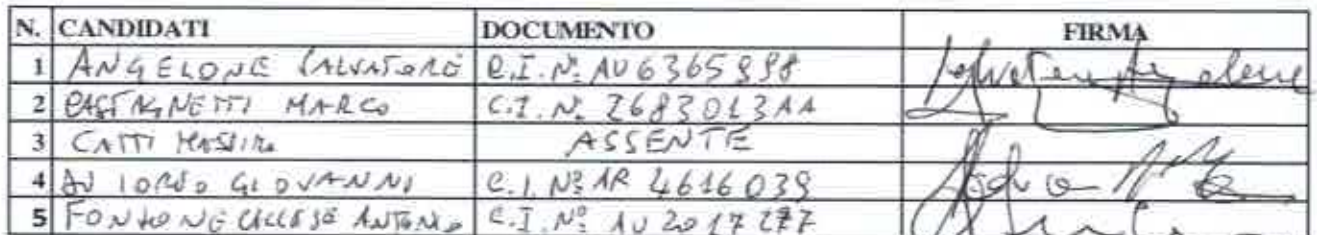 N. CANDIDATI DOCUMENTO FIRMA
1 ANGELONE SALVATORE C.I. Nº AU 6365998
2 CASTAGNETTI MARCO C.I. Nº 2683013AA
3 CATTI MASSIMO ASSENTE
4 DI IORIO GIOVANNI C.I. Nº AR 4616039
5 ANTONIO C.I. Nº AU 2017277